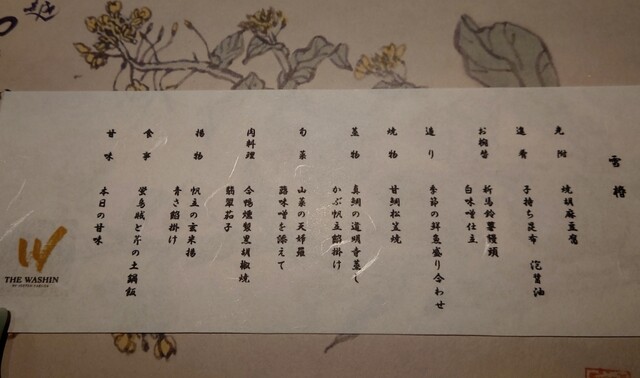 雪椿
先附 焼胡麻豆腐
進肴 子持ち昆布 泡醤油
お椀替 新馬鈴薯饅頭
白味噌仕立
造り 季節の鮮魚盛り合わせ
焼物 甘鯛松笠焼
蒸物 真鯛の道明寺蒸し
かぶ帆立餡掛け
旬菜 山菜の天婦羅
蕗味噌を添えて
肉料理 合鴨燻製黒胡椒焼
翡翠茄子
揚物 帆立の玄米揚
青さ餡掛け
食事 蛍烏賊と芹の土鍋飯
甘味 本日の甘味
THE WASHIN